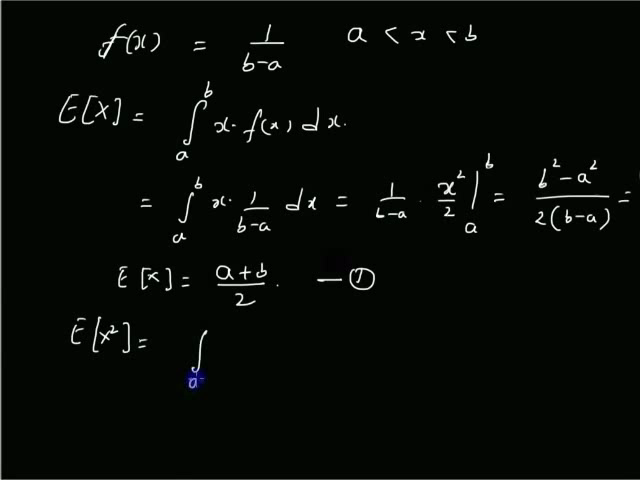 f(x) = 1/(b-a) a < x < b
E[X] = ∫_a^b x. f(x) dx.
= ∫_a^b x. 1/(b-a) dx = 1/(b-a) . x²/2 |_a^b = (b²-a²)/(2(b-a)) =
E[x] = (a+b)/2 . — ①
E[x²] = ∫_a